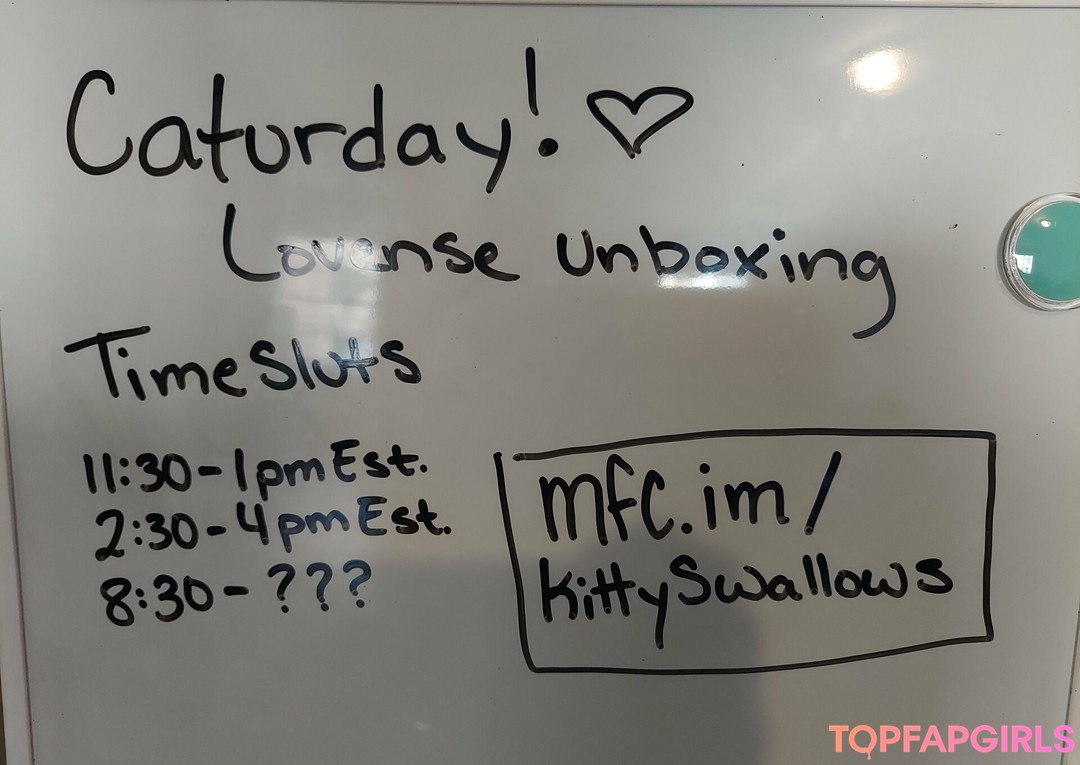 Caturday! ♡
Lovense Unboxing
Time Sluts
11:30-1pm Est.
2:30-4pm Est.
8:30-???
mfc.im/
KittySwallows
TOPFAPGIRLS